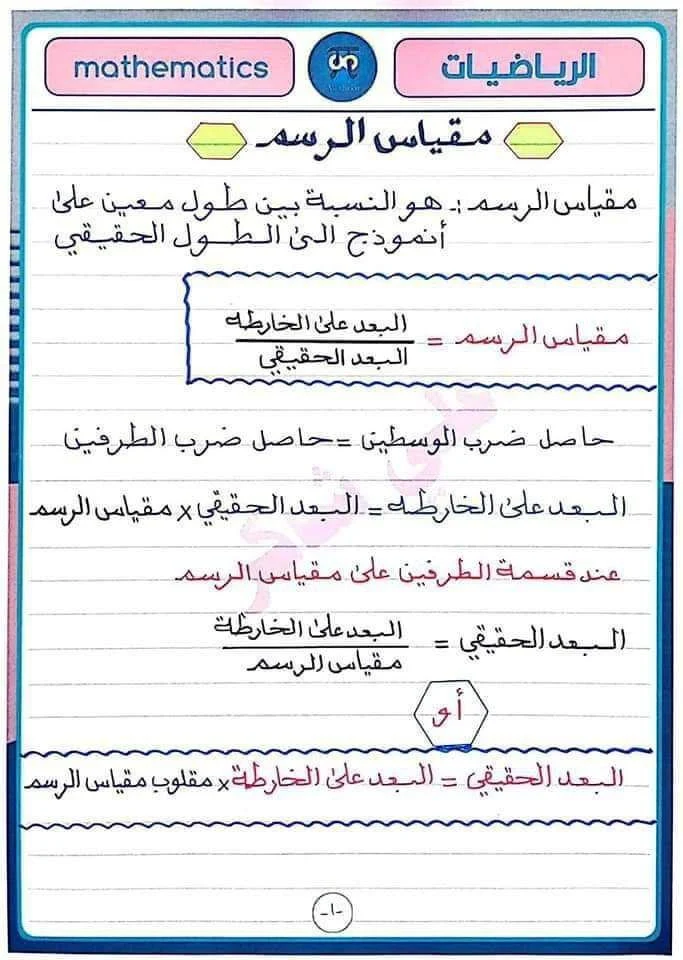 الرياضيات
mathematics
مقياس الرسم
مقياس الرسم :ـ هو النسبة بين طول معين على
أنموذج الى الطول الحقيقي
مقياس الرسم = البعد على الخارطة
البعد الحقيقي
حاصل ضرب الوسطين = حاصل ضرب الطرفين
البعد على الخارطة = البعد الحقيقي × مقياس الرسم
عند قسمة الطرفين على مقياس الرسم
البعد الحقيقي = البعد على الخارطة
مقياس الرسم
أو
البعد الحقيقي = البعد على الخارطة × مقلوب مقياس الرسم
علي شاكر
-١-